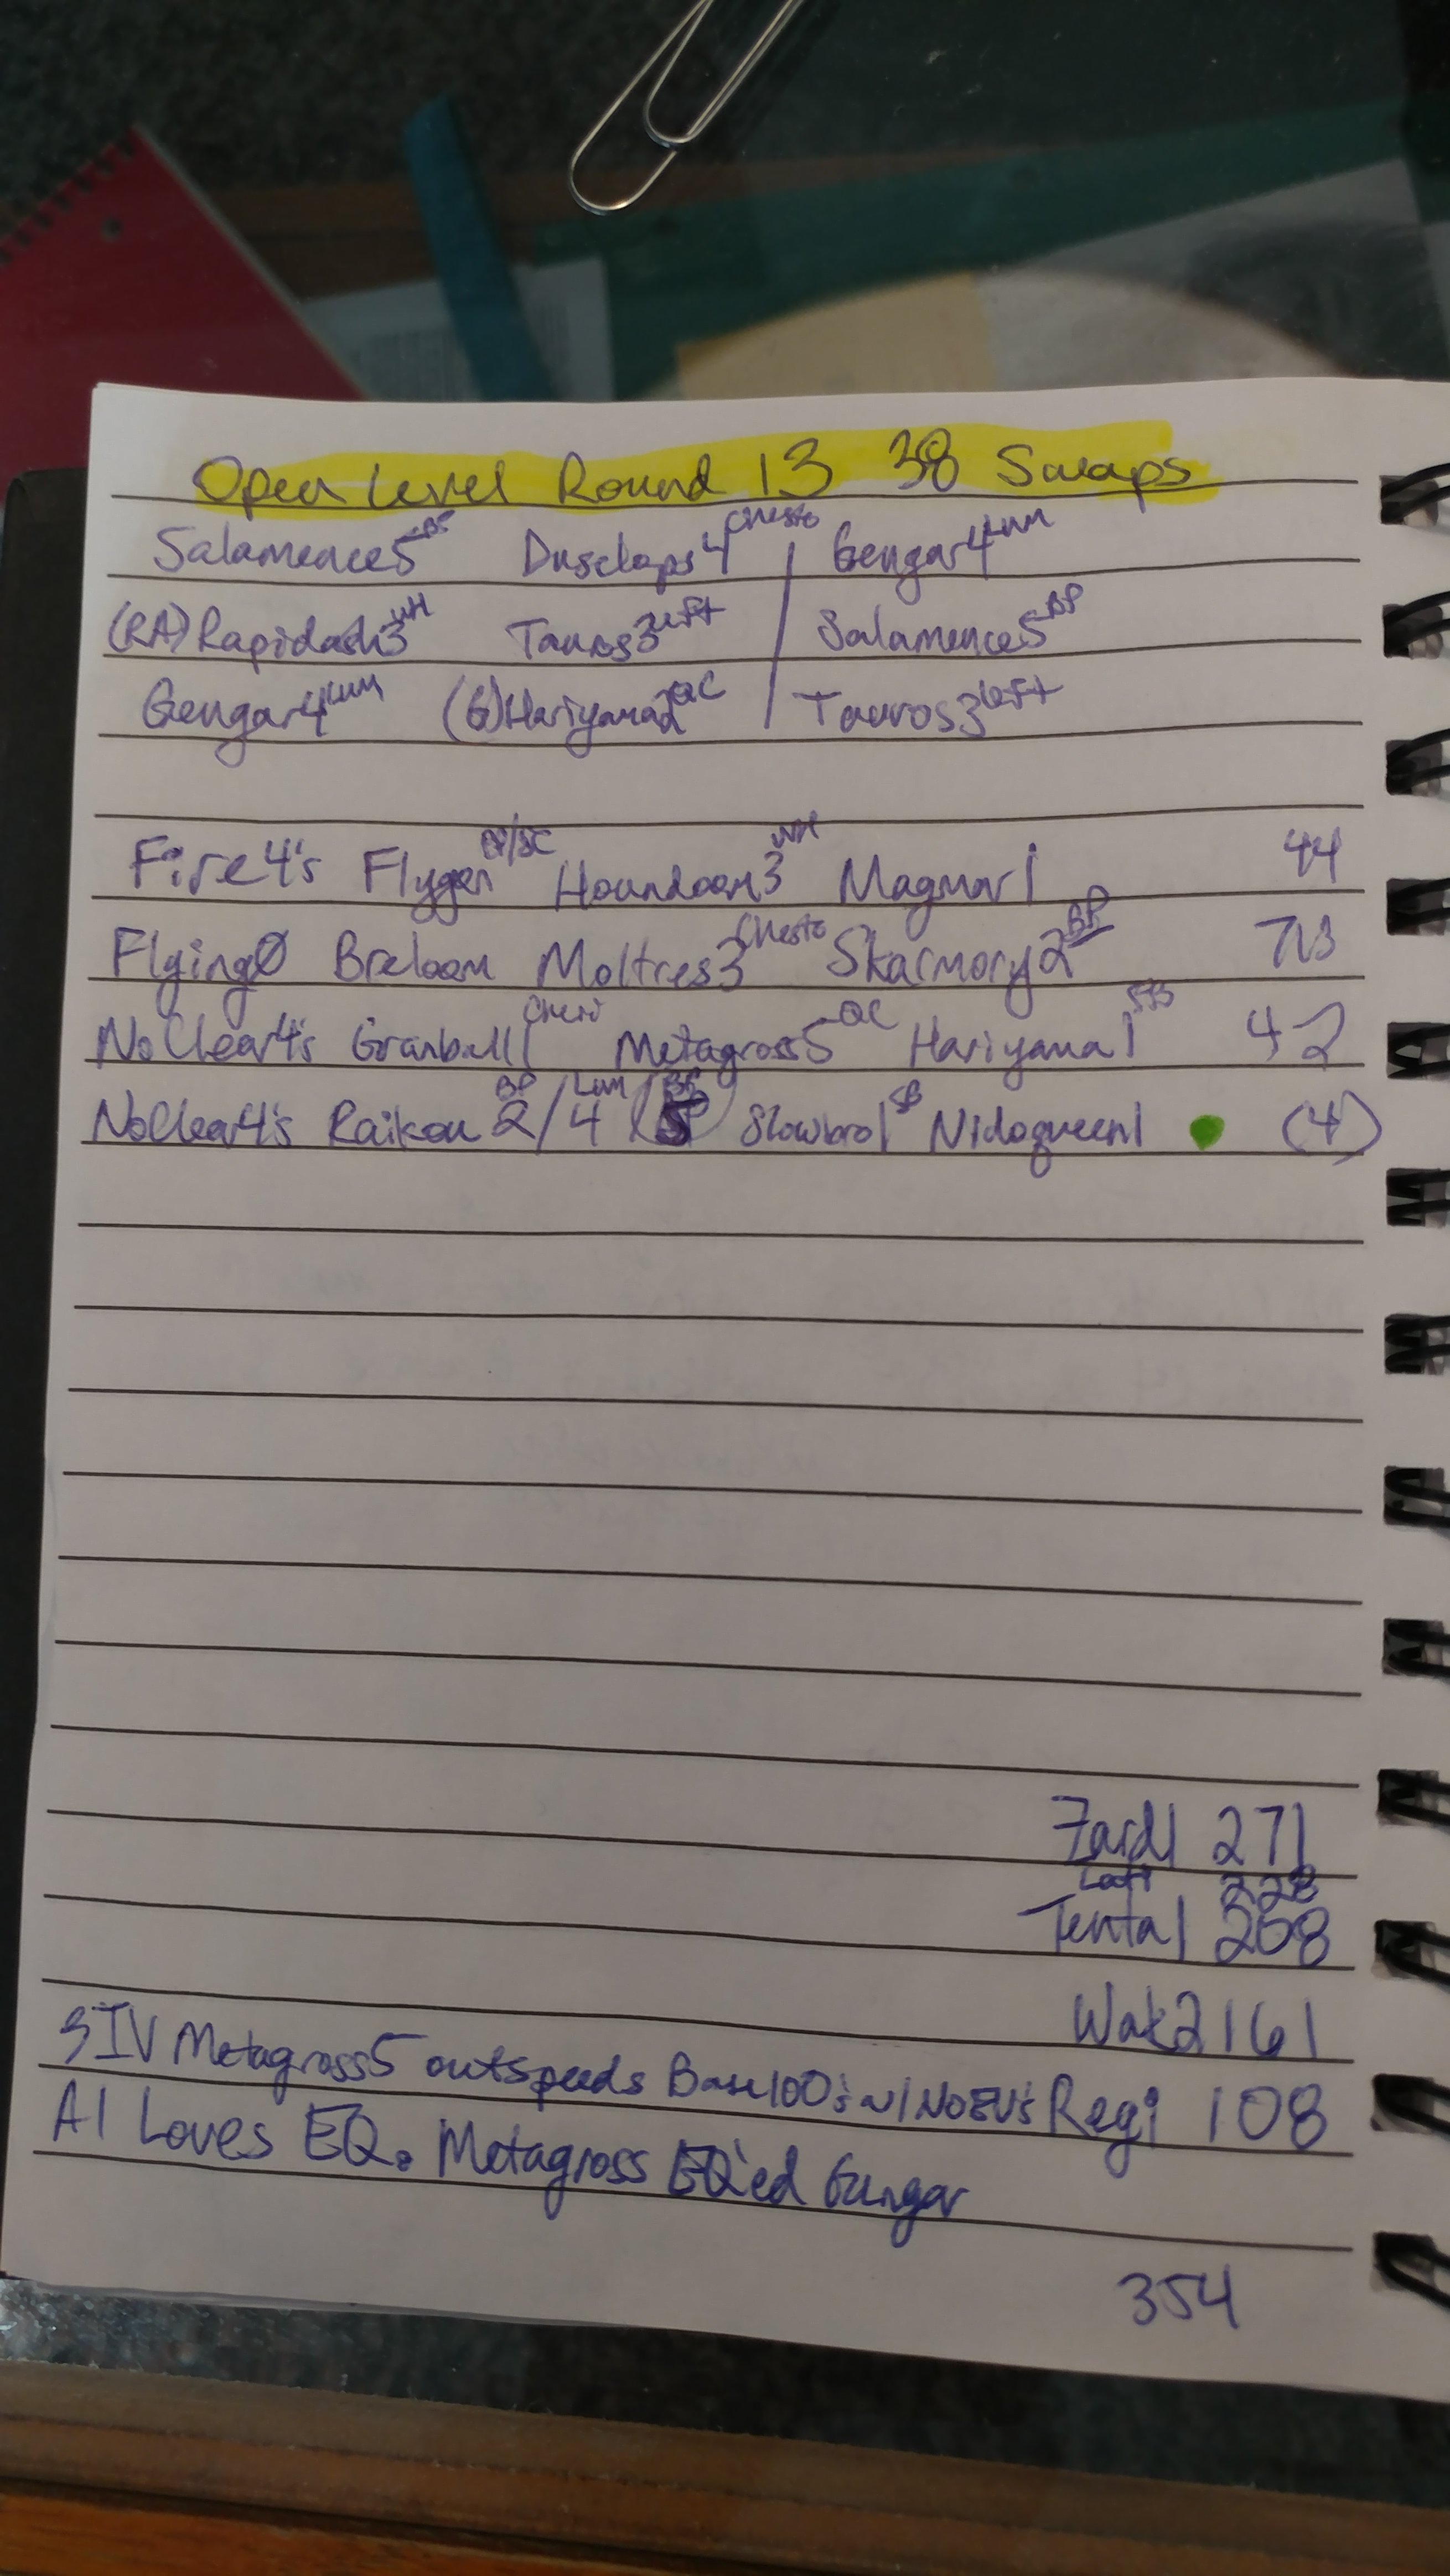 Open Level Round 13 38 Swaps
Salamence5 BP Dusclops4 Chesto | Gengar4 Lum
(RA)Rapidash3 WH Tauros3 Left | Salamence5 BP
Gengar4 Lum (G)Hariyama2 QC | Tauros3 Left
Fire4's Flygon /SC Houndoom3 WH Magmar1 44
Flying0 Breloom Moltres3 Chesto Skarmory2 BP
NoClear4's Granbull1 Cheri Metagross5 QC Hariyama1 42
NoClear4's Raikou 2 BP /4 Lum / Slowbro1 Nidoqueen1 (4)
Zard1 271
Lati 228
Tenta1 268
Wak2 161
3IV Metagross5 outspeeds Base100's w/NoEV's Regi 108
AI Loves EQ. Metagross EQ'ed Gengar
354